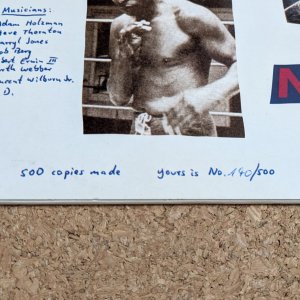 Musicians:
Adam Holzman
Steve Thornton
Darryl Jones
Bob Berg
Robert Erwin III
Garth Webber
Vincent Wilburn Jr.
D.
N
500 copies made yours is No. 140/500